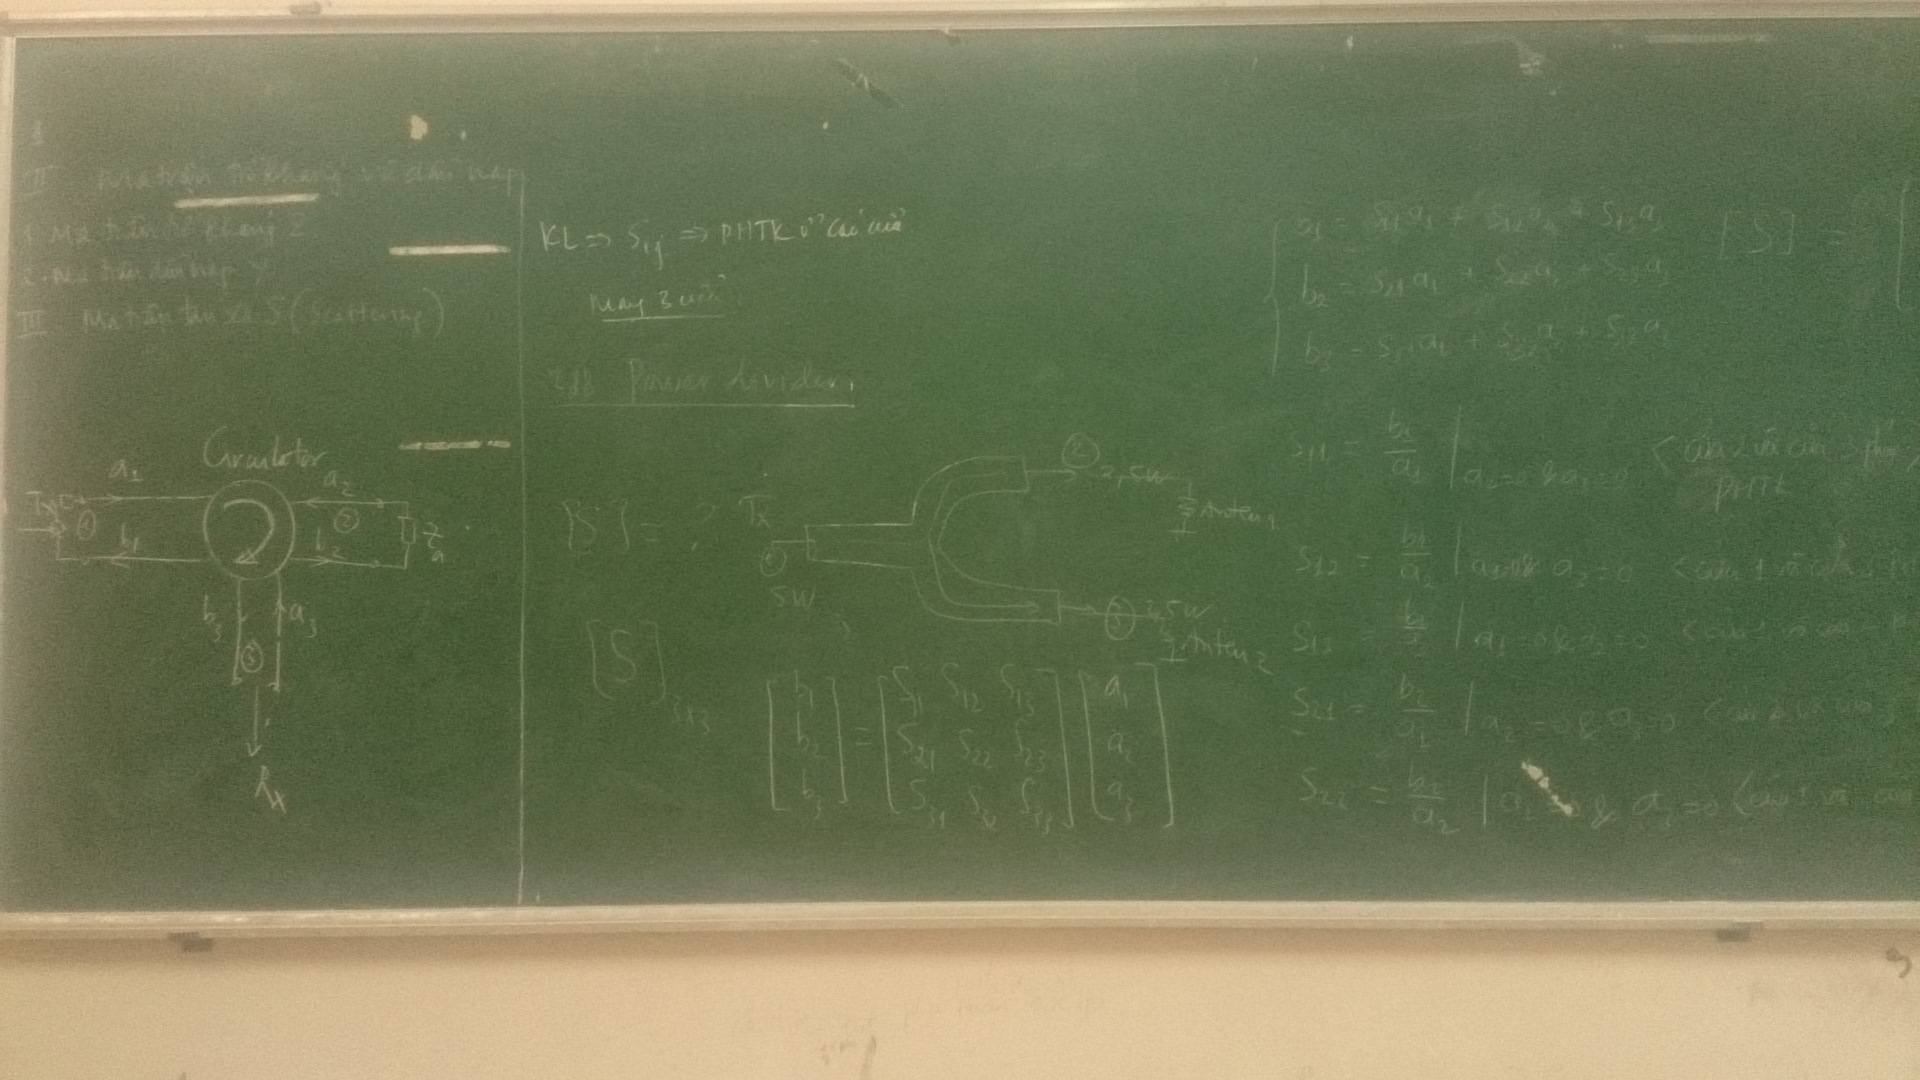 II Ma trận trở kháng và dẫn nạp
1. Ma trận trở kháng Z
2. Ma trận dẫn nạp Y
III Ma trận tán xạ S (Scattering)
Circulator
a1
a2
Tx
1
2
b1
b2
b3
a3
3
Rx
KL => Sij => PHTK ở các cửa
Mạng 3 cửa
Power divider
[S] = ?
Tx
1
5W
2
2,5W
Anten 1
3
2,5W
Anten 2
[S]3x3
[b1 b2 b3] = [S11 S12 S13 S21 S22 S23 S31 S32 S33] [a1 a2 a3]
b1 = S11a1 + S12a2 + S13a3
b2 = S21a1 + S22a2 + S23a3
b3 = S31a1 + S32a2 + S33a3
[S] =
S11 = b1/a1 | a2=0 & a3=0 (cửa 2 và cửa 3 phải
PHTK
S12 = b1/a2 | a1=0 & a3=0 (cửa 1 và cửa 3
S13 = b1/a3 | a1=0 & a2=0 (cửa 1 và
S21 = b2/a1 | a2=0 & a3=0 (cửa 2 và cửa 3
S22 = b2/a2 | a1=0 & a3=0 (cửa 1 và